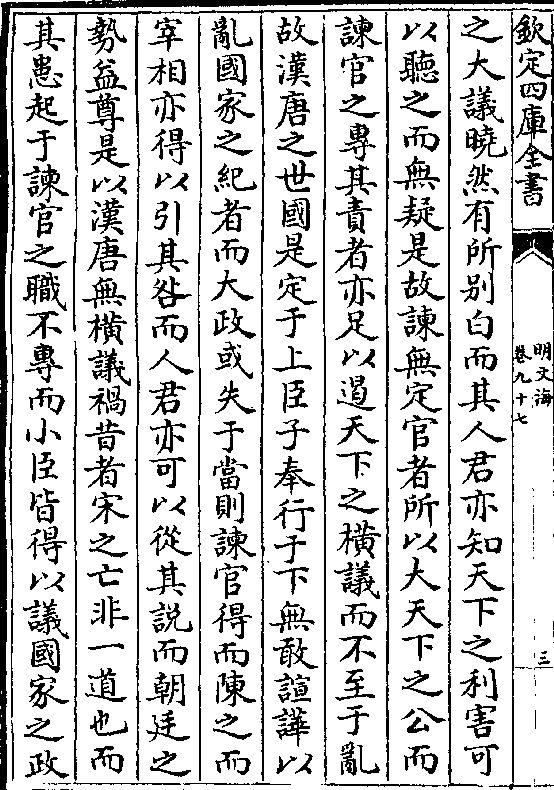 欽定四庫全書
明文海
卷九十七
三
之大議曉然有所别白而其人君亦知天下之利害可
以聽之而無疑是故諫無定官者所以大天下之公而
諫官之專其責者亦足以遏天下之橫議而不至于亂
故漢唐之世國是定于上臣子奉行于下無敢諠譁以
亂國家之紀者而大政或失于當則諫官得而陳之而
宰相亦得以引其咎而人君亦可以從其説而朝廷之
勢益尊是以漢唐無橫議禍昔者宋之亡非一道也而
其患起于諫官之職不專而小臣皆得以議國家之政